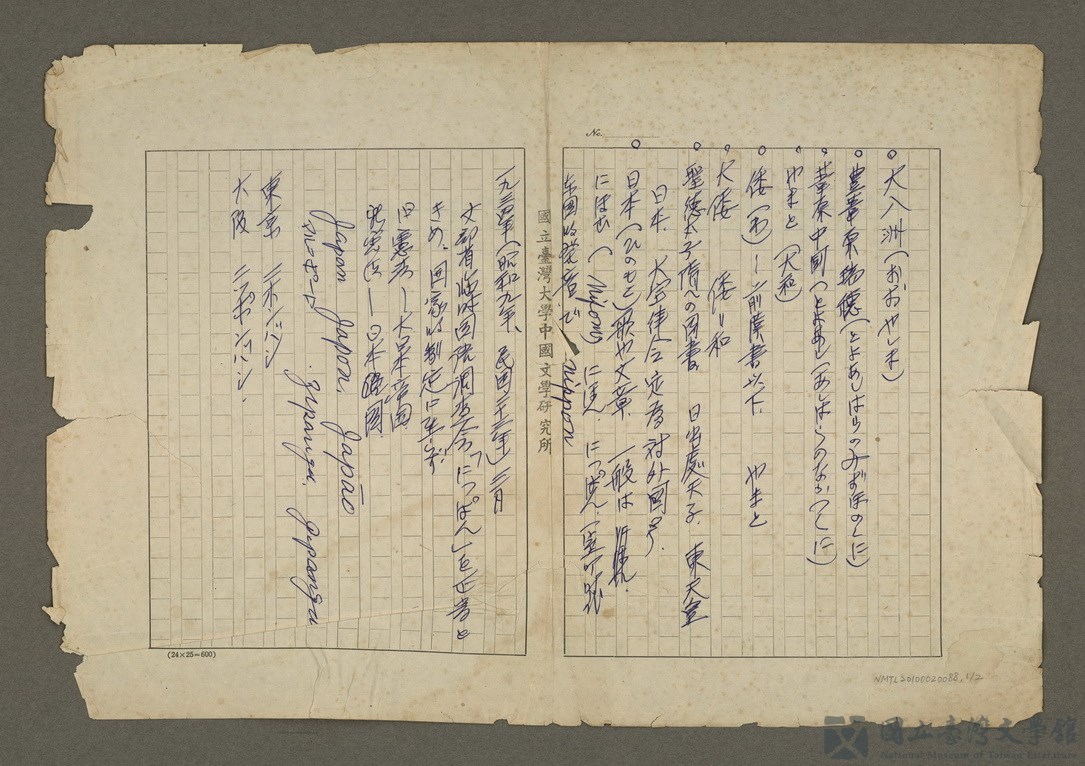 No.
大八洲(おおやしま)
豊葦原瑞穂(とよあしはらのみずほのくに)
葦原中国(とよあし(あしはらのなかつくに)
やまと(大和)
倭(わ)—前漢書以下 やまと
大倭 倭=和
聖徳太子隋への国書 日出處天子. 東天皇
日本. 大宝律令定為対外国号.
日本(ひのもと)歌や文章. 一般は
にほむ(Nippon) にほん. にっぽん.(室町
の発音で Nippon
國立臺灣大學中國文學研究所
一九三四年(昭和九年、民国二十三年)三月
文部省臨時国語調査会「にっぽん」を正書と
きめ、国家的制定に至らず
旧憲法—大日本帝国
新憲法—日本国
Japan Japon. Japão
マルコポーロ Zipangu. Jipangu
東京 ニホンバシ
大阪 ニッポンバシ.
(24×25=600)
NMTL20100020088, 1/2
國立臺灣文學館
National Museum of Taiwan Literature